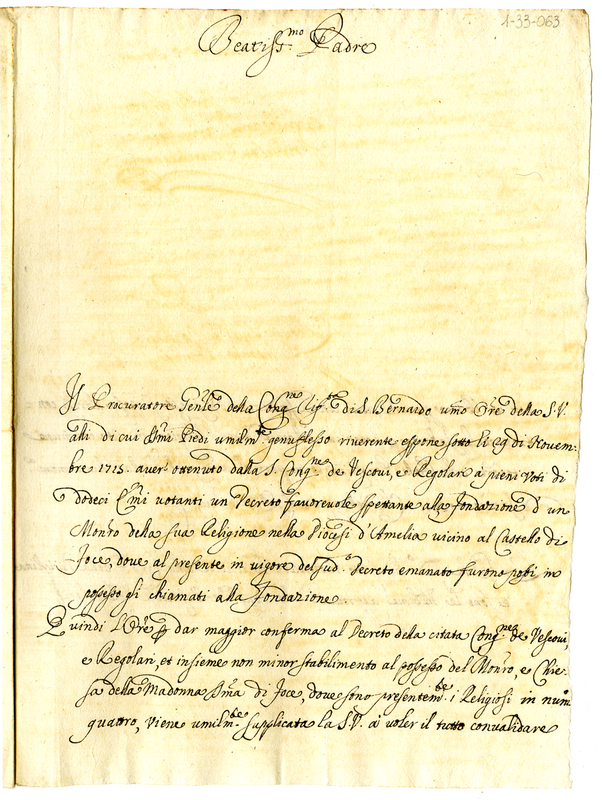 1-33-063
Beatiss.mo Padre
Il Procuratore Gen'le della Cong.ne di S. Bernardo umo Ore della S.V.
alli di cui Smi Piedi umilm.te genuflesso riverente espone sotto li 29 di Novem-
bre 1715. aver' ottenuto dalla S. Cong.ne de Vescovi, e Regolari a pieni voti di
dodeci Emi votanti un Decreto favorevole spettante alla fondazione d'un
Monro della sua Religione nella Diocesi d'Amelia vicino al Castello di
Foce, dove al presente in vigore del sud.o Decreto emanato furono posti in
possesso gli chiamati alla fondazione
Quindi l'Ore p dar maggior conferma al Decreto della citata Cong.ne de Vescovi,
e Regolari, et insieme non minor stabilimento al possesso del Monro, e Chie-
sa della Madonna Sma di Foce, dove sono presentem.te i Religiosi in num.o
quattro, viene umilm.te supplicata la S.V. a voler il tutto convalidare